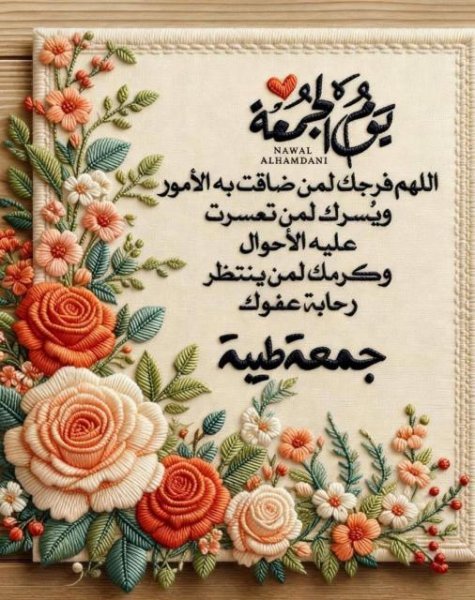 يوم الجمعة
NAWAL
ALHAMDANI
اللهم فرجك لمن ضاقت به الأمور
ويُسرك لمن تعسرت
عليه الأحوال
وكرمك لمن ينتظر
رحابة عفوك
جمعة طيبة